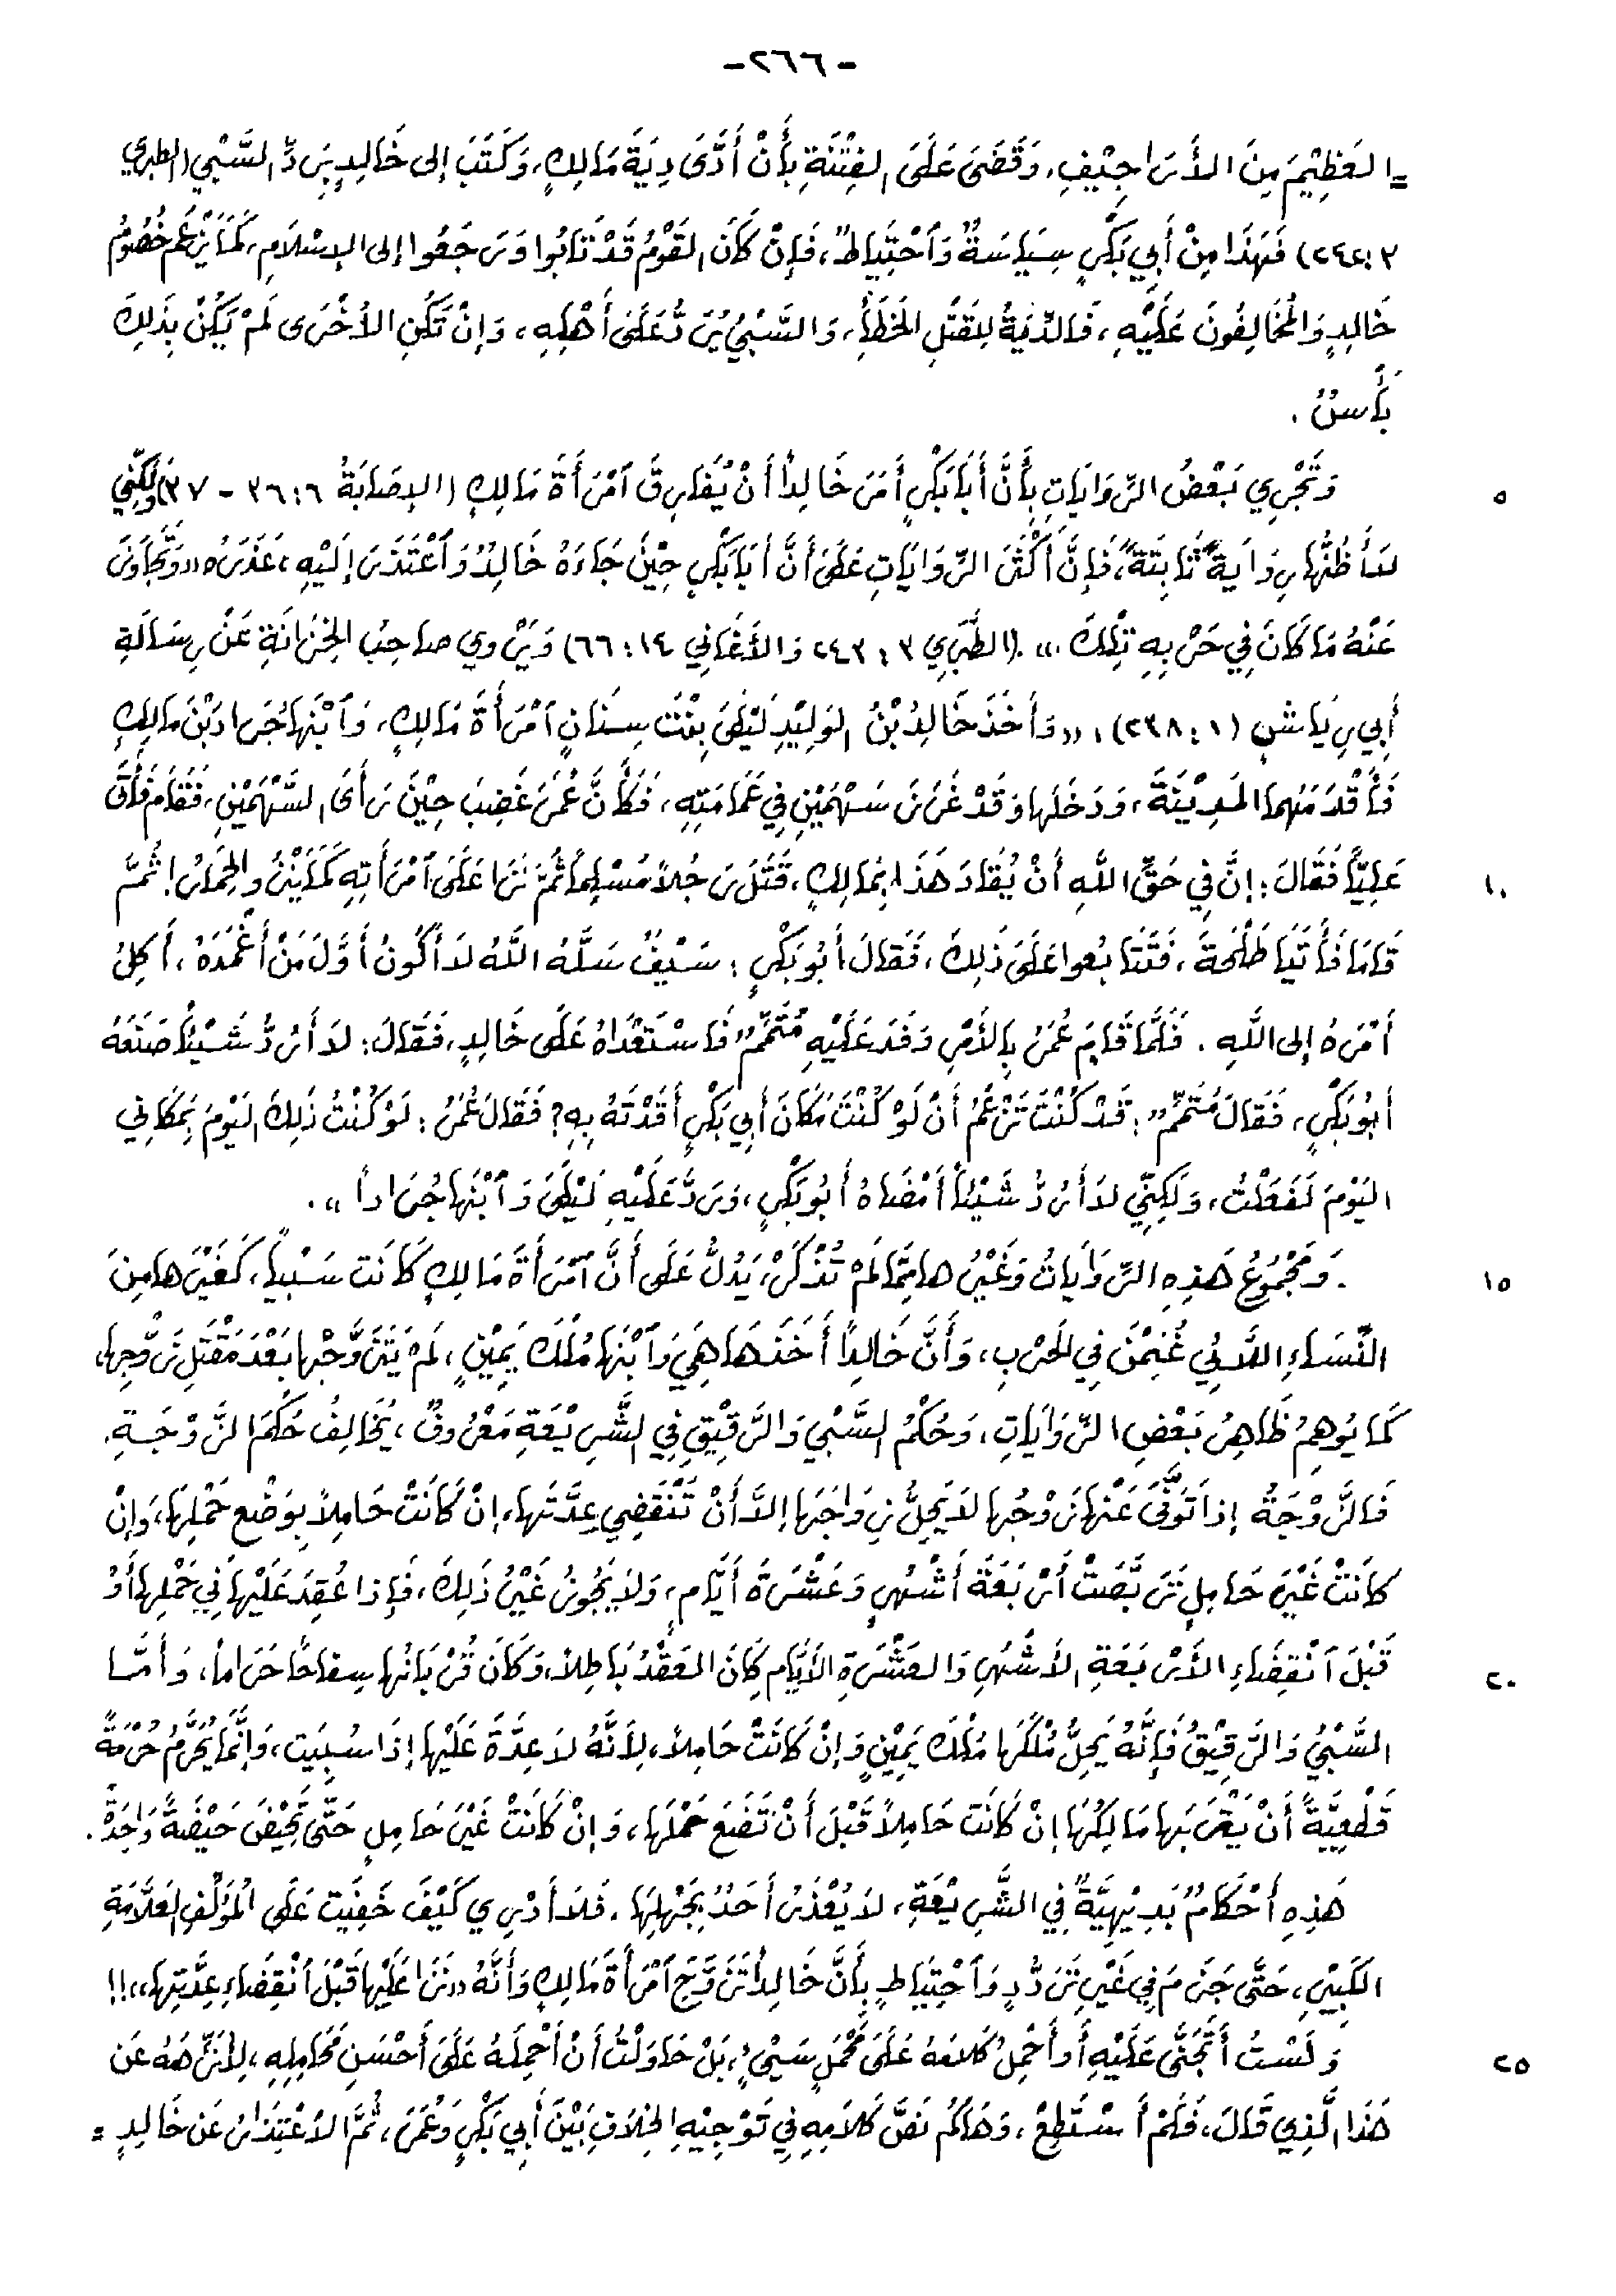 -٢٦٦-
= العَظِيْمَ مِنَ الأَرَاجِيْفِ، وَقَضَىَ عَلَىَ الفِتْنَةِ بِأَنْ أَدَّىَ دِيَةَ مَالِكٍ، وَكَتَبَ إلى خَالِدٍ بِرَدِّ السَّبْيِ (الطبري
٣: ٢٤٢) فَهَذَا مِنْ أَبِي بَكْرٍ سِيَاسَةٌ وَٱحْتِيَاطٌ، فَإِنْ كَانَ القَوْمُ قَدْ تَابُوا وَرَجَعُوا إلى الإِسْلَامِ، كَمَا يَزْعُمُ خُصُوْمُ
خَالِدٍ وَالمُخَالِفُونَ عَلَيْهِ، فَالدِّيَةُ لِلقَتْلِ الخَطَأِ، وَالسَّبْيُ يُرَدُّ عَلَىَ أَهْلِهِ، وَإِنْ تَكُنِ الأُخْرَى لَمْ يَكُنْ بِذَلِكَ
بَأْسٌ .
وَتَجْرِي بَعْضُ الرِّوَايَاتِ بِأَنَّ أَبَا بَكْرٍ أَمَرَ خَالِداً أَنْ يُفَارِقَ ٱمْرَأَةَ مَالِكٍ (الإِصَابَةُ ٦: ٣٦ - ٣٧) وَلَكِنِّي ٥
لَا أَظُنُّهَا رِوَايَةً ثَابِتَةً، فَإِنَّ أَكْثَرَ الرِّوَايَاتِ عَلَىَ أَنَّ أَبَا بَكْرٍ حِيْنَ جَاءَهُ خَالِدٌ وَٱعْتَذَرَ إِلَيْهِ، عَذَرَهُ «وَتَجَاوَزَ
عَنْهُ مَا كَانَ فِي حَرْبِهِ تِلْكَ.». (الطَّبَرِي ٣: ٢٤٣ وَالأَغَانِي ١٤: ٦٦) وَيَرْوِي صَاحِبُ الخِزَانَةِ عَنْ رِسَالَةِ
أَبِي رِيَاشٍ (١: ٢٣٨)، «وَأَخَذَ خَالِدُ بْنُ الوَلِيْدِ لَيْلَىَ بِنْتَ سِنَانٍ ٱمْرَأَةَ مَالِكٍ، وَٱبْنَهَا جُرَادَ بْنَ مَالِكٍ
فَأَقْدَمَهُمَا المَدِيْنَةَ، وَدَخَلَهَا وَقَدْ غَرَزَ سَهْمَيْنِ فِي عَمَامَتِهِ، فَكَأَنَّ عُمَرَ غَضِبَ حِيْنَ رَأَىَ السَّهْمَيْنِ، فَقَامَ فَأَتَىَ
عَلِيّاً فَقَالَ: إِنَّ فِي حَقِّ اللهِ أَنْ يُقَادَ هَذَا بِمَالِكٍ، قَتَلَ رَجُلاً مُسْلِماً ثُمَّ نَزَا عَلَىَ ٱمْرَأَتِهِ كَمَا يَنْزُو الحِمَارُ! ثُمَّ ١٠
قَامَا فَأَتَيَا طَلْحَةَ، فَتَتَابَعُوا عَلَىَ ذَلِكَ، فَقَالَ أَبُو بَكْرٍ: سَيْفٌ سَلَّهُ اللَّهُ لَا أَكُونُ أَوَّلَ مَنْ أَغْمَدَهُ، أَكِلُ
أَمْرَهُ إلى اللَّهِ. فَلَمَّا قَامَ عُمَرُ بِالأَمْرِ وَفَدَ عَلَيْهِ مُتَمِّمٌ فَاسْتَعْدَاهُ عَلَى خَالِدٍ، فَقَالَ: لَا أَرُدُّ شَيْئاً صَنَعَهُ
أَبُو بَكْرٍ، فَقَالَ مُتَمِّمٌ: قَدْ كُنْتَ تَزْعُمُ أَنْ لَوْ كُنْتَ مَكَانَ أَبِي بَكْرٍ أَقَدْتَهُ بِهِ؟ فَقَالَ عُمَرُ: لَوْ كُنْتُ ذَلِكَ اليَوْمَ بِمَكَانِي
اليَوْمَ لَفَعَلْتُ، وَلَكِنِّي لَا أَرُدُّ شَيْئاً أَمْضَاهُ أَبُو بَكْرٍ، وَرَدَّ عَلَيْهِ لَيْلَىَ وَٱبْنَهَا جُرَاداً».
. وَمَجْمُوْعُ هَذِهِ الرِّوَايَاتِ وَغَيْرُهَا مِمَّا لَمْ تُذْكَرْ، يَدُلُّ عَلَى أَنَّ ٱمْرَأَةَ مَالِكٍ كَانَت سَبْياً، كَغَيْرِهَا مِنَ ١٥
النِّسَاءِ اللَّاتِي غُنِمْنَ فِي الحَرْبِ، وَأَنَّ خَالِداً أَخَذَهَا هِيَ وَٱبْنَهَا مُلْكَ يَمِيْنٍ، لَمْ يَتَزَوَّجْهَا بَعْدَ مَقْتَلِ زَوْجِهَا،
كَمَا يُوهِمُ ظَاهِرُ بَعْضِ الرِّوَايَاتِ، وَحُكْمُ السَّبْيِ وَالرَّقِيْقِ فِي الشَّرِيْعَةِ مَعْرُوفٌ، يُخَالِفُ حُكْمَ الزَّوْجَةِ.
فَالزَّوْجَةُ إذا تَوَفَّىَ عَنْهَا زَوْجُهَا لَا يَحِلُّ زِوَاجُهَا إلَّا أَنْ تَنْقَضِي عِدَّتُهَا، إنْ كَانَتْ حَامِلاً بِوَضْعِ حَمْلِهَا، وَإنْ
كَانَتْ غَيْرَ حَامِلٍ تَرَبَّصَتْ أَرْبَعَةَ أَشْهُرٍ وَعَشْرَةَ أَيَّامٍ، وَلَا يَجُوزُ غَيْرُ ذَلِكَ، فَإِذا عُقِدَ عَلَيْهَا فِي حَمْلِهَا أَوْ
قَبْلَ ٱنْقِضَاءِ الأَرْبَعَةِ الأَشْهُرِ وَالعَشْرَةِ الأَيَّامِ كَانَ العَقْدُ بَاطِلاً، وَكَانَ قُرْبَانُهَا سِفَاحًا حَرَاماً، وَأَمَّا ٢٠
السَّبْيُ وَالرَّقِيْقُ فَإِنَّهُ يَحِلُّ مُلْكُهَا مُلْكَ يَمِيْنٍ وَإنْ كَانَتْ حَامِلاً، لِأَنَّهُ لَا عِدَّةَ عَلَيْهَا إذَا سُبِيَت، وَإِنَّمَا يُحَرَّمُ حُرْمَةً
قَطْعِيَّةً أَنْ يَقْرَبَهَا مَالِكُهَا إنْ كَانَت حَامِلاً قَبْلَ أَنْ تَضَعَ حَمْلَهَا، وَإنْ كَانَتْ غَيْرَ حَامِلٍ حَتَّى تَحِيْضَ حَيْضَةً وَاحِدَةً.
هَذِهِ أَحْكَامٌ بَدِيْهِيَّةٌ فِي الشَّرِيْعَةِ، لَا يُعْذَرُ أَحَدٌ بِجَهْلِهَا. فَلَا أَدْرِي كَيْفَ خَفِيَت عَلَى المُؤَلِّفِ العَلَّامَةِ
الكَبِيْرِ، حَتَّى جَزَمَ فِي غَيْرِ تَرَدُّدٍ وَٱحْتِيَاطٍ بِأَنَّ خَالِداً تَزَوَّجَ ٱمْرَأَةَ مَالِكٍ وَأَنَّهُ «نَزَا عَلَيْهَا قَبْلَ ٱنْقِضَاءِ عِدَّتِهَا»!!
وَلَسْتُ أَتَجَنَّى عَلَيْهِ أَو أَحْمِلُ كَلَامَهُ عَلَىَ مَحْمَلٍ سَيِّئٍ، بَلْ حَاوَلْتُ أَنْ أَحْمِلَهُ عَلَىَ أَحْسَنِ مَحَامِلِهِ، لِأُنَزِّهَهُ عَن ٢٥
هَذَا الَّذِي قَالَ، فَلَمْ أَسْتَطِعْ، وَهَاكُم نَصَّ كَلَامِهِ فِي تَوْجِيْهِ الخِلَافِ بَيْنَ أَبِي بَكْرٍ وَعُمَرَ، ثُمَّ الاَعْتِذَارُ عَن خَالِدٍ =